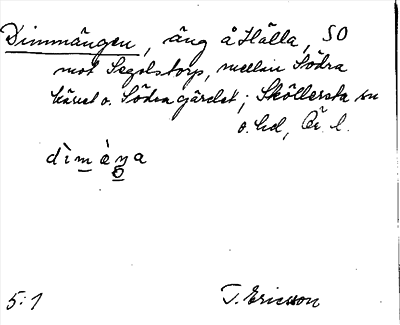 Dimmängen, äng å Hälla, SO
mot Segolstorp, mellan Södra
kärret o. Södra gärdet; Sköllersta sn
o. hd, Ör. l.
dìmèŋa
5:1 T. Ericsson